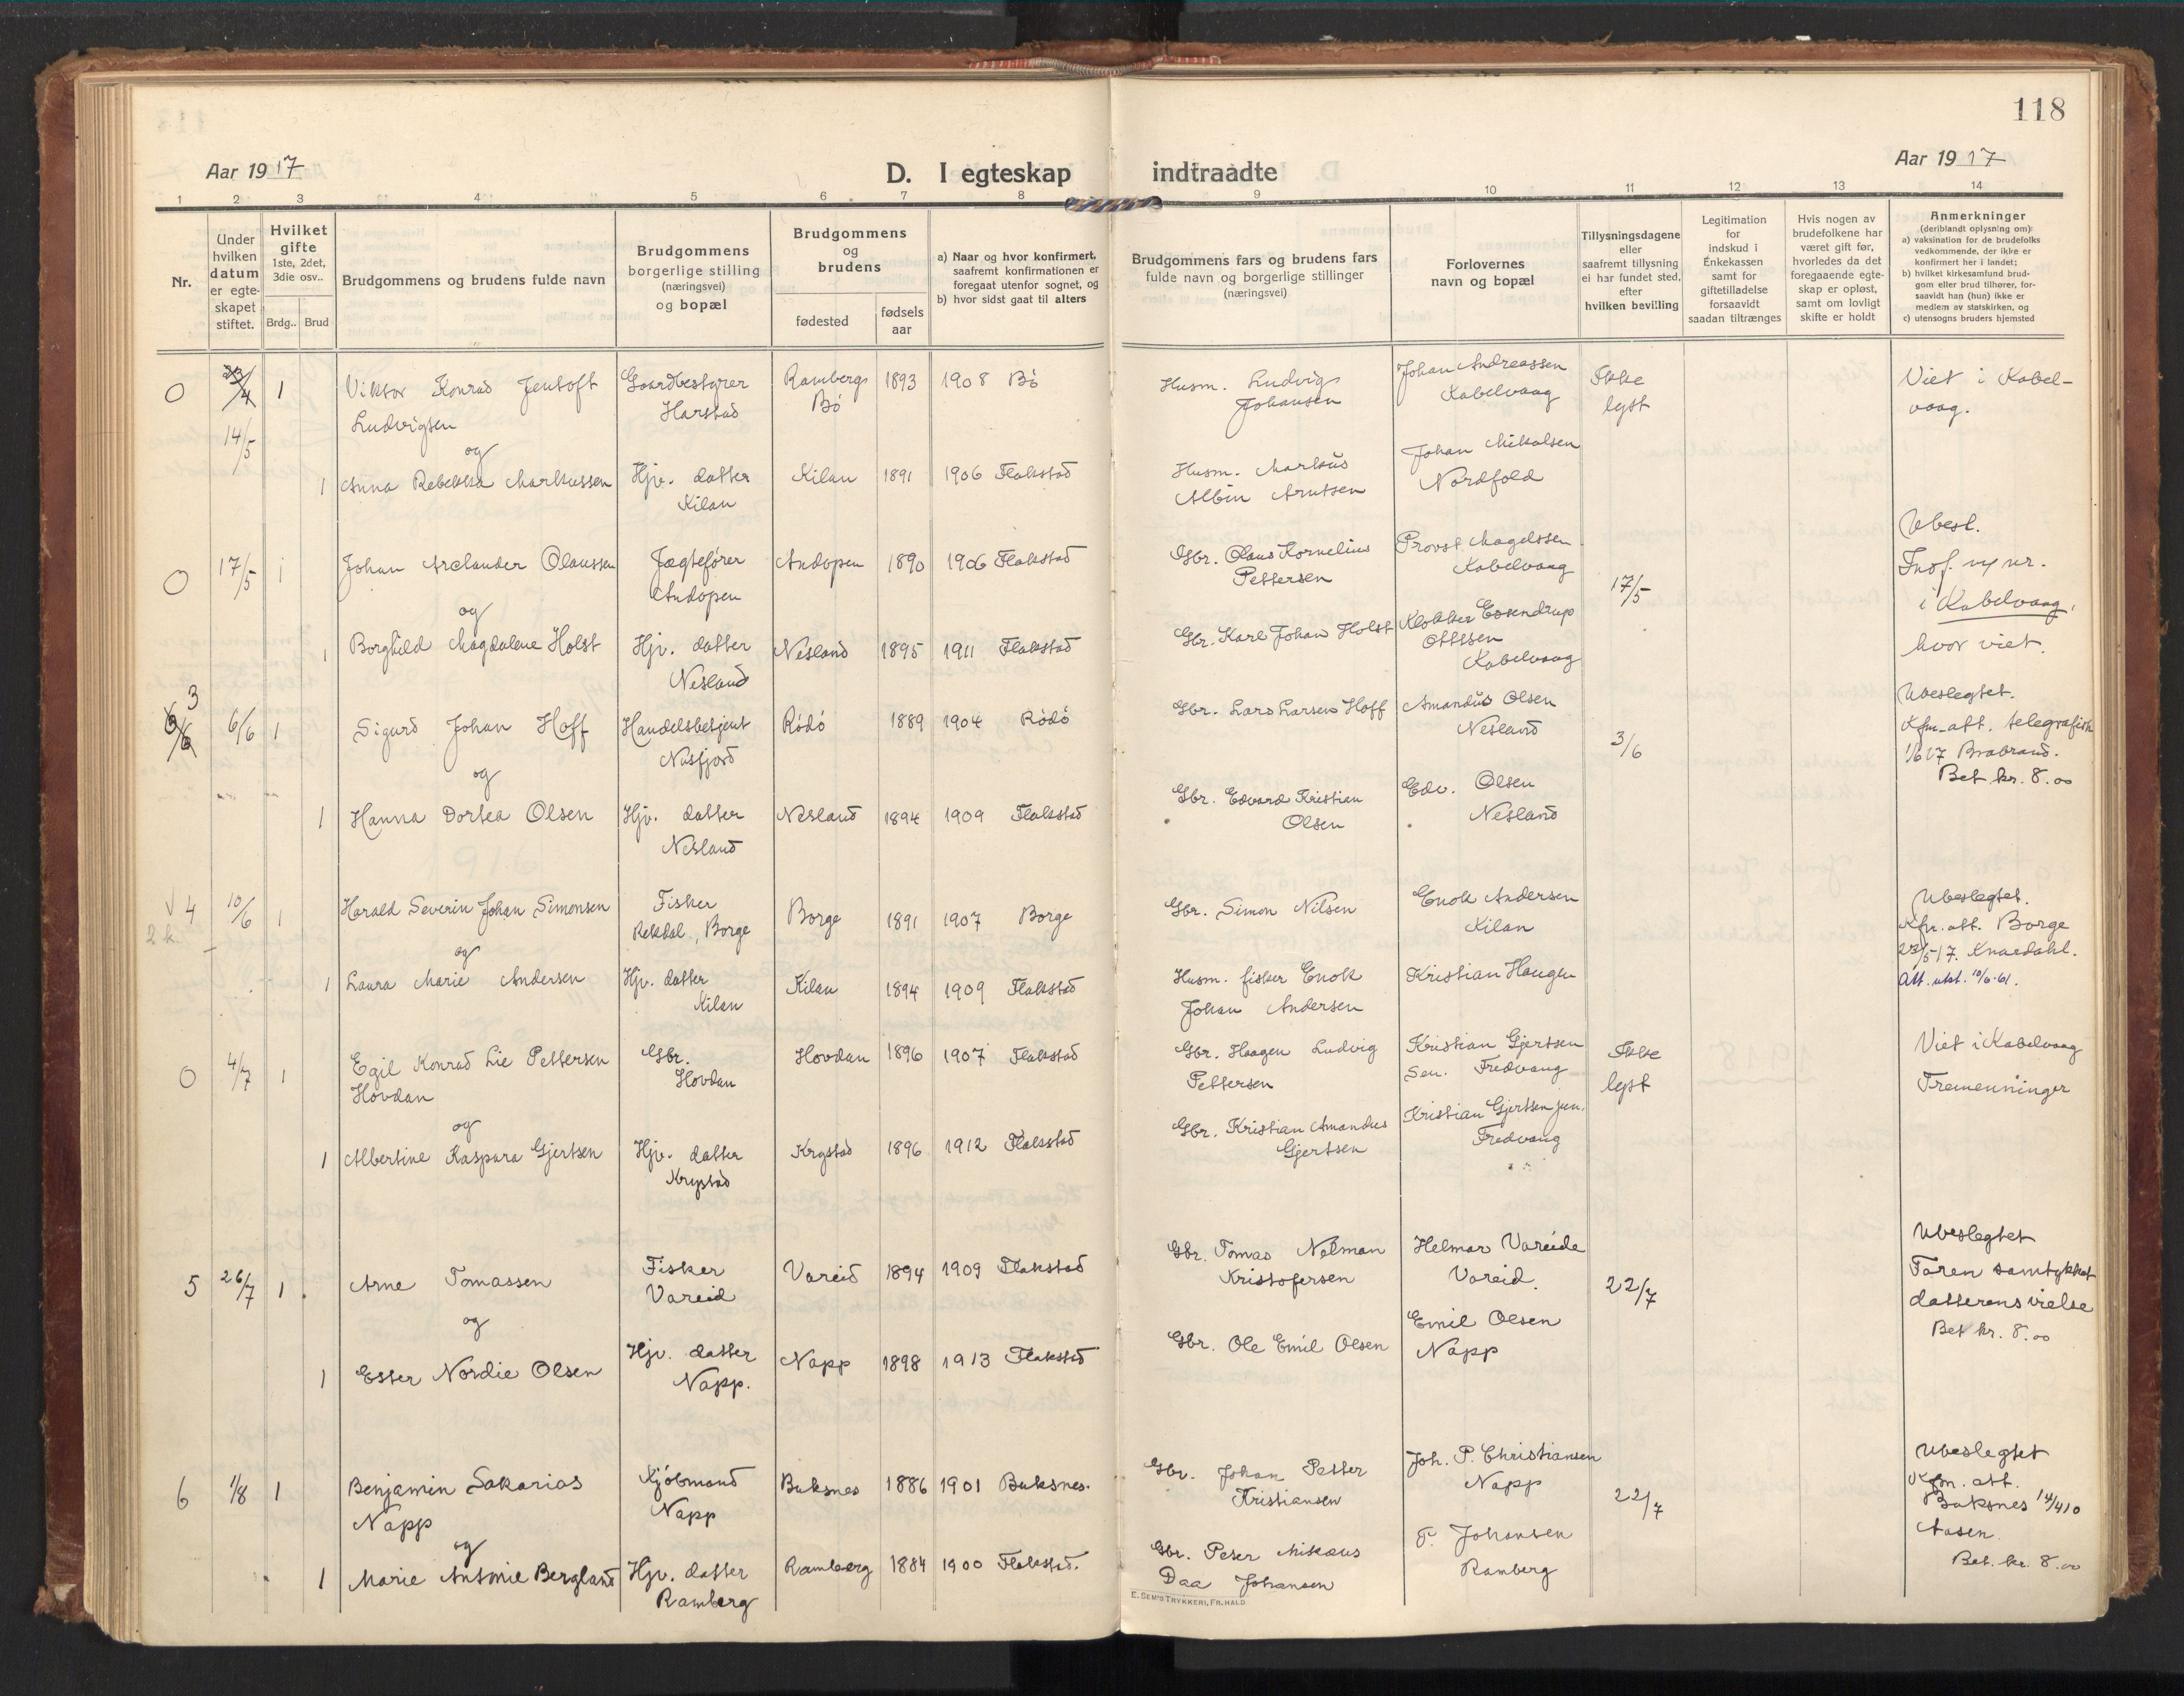 118
Aar 1917
D. I egteskap indtraadte
Aar 1917
1 2 3 4 5 6 7 8 9 10 11 12 13 14
Nr.
Under
hvilken
datum
er egte-
skapet
stiftet.
Hvilket
gifte
1ste, 2det,
3die osv..
Brdg.. Brud
Brudgommens og brudens fulde navn
Brudgommens
borgerlige stilling
(næringsvei)
og bopæl
Brudgommens
og
brudens
fødested
fødsels
aar
a) Naar og hvor konfirmert,
saafremt konfirmationen er
foregaat utenfor sognet, og
b) hvor sidst gaat til alters
Brudgommens fars og brudens fars
fulde navn og borgerlige stillinger
(næringsvei)
Forlovernes
navn og bopæl
Tillysningsdagene
eller
saafremt tillysning
ei har fundet sted,
efter
hvilken bevilling
Legitimation
for
indskud i
Enkekassen
samt for
giftetilladelse
forsaavidt
saadan tiltrænges
Hvis nogen av
brudefolkene har
været gift før,
hvorledes da det
foregaaende egte-
skap er opløst,
samt om lovligt
skifte er holdt
Anmerkninger
(deriblandt oplysning om):
a) vaksination for de brudefolks
vedkommende, der ikke er
konfirmert her i landet;
b) hvilket kirkesamfund brud-
gom eller brud tilhører, for-
saavidt han (hun) ikke er
medlem av statskirken, og
c) utensogns bruders hjemsted
0 14/5 1 Viktor Konrad Jentoft
Ludvigsen
Gaardbestyrer
Harstad
Rambergs
Bö
1893 1908 Bö
Husm. Ludvig
Johansen
Johan Andreassen
Kabelvaag
Ikke
lyst
Viet i Kabel-
vaag.
og
1 Anna Rebekka Markussen
Hjv. datter
Kilan
Kilan 1891 1906 Flakstad
Husm. Markus
Albin Arntsen
Johan Mikalsen
Nordfold
0 17/5 1 Johan Arelander Olaussen
Jægtefører
Andopen
Andopen 1890 1906 Flakstad
Gbr. Olaus Kornelius
Pettersen
Provst Magelssen
Kabelvaag
17/5
Ubesl.
Indf. m/ nr.
i Kabelvaag,
hvor viet.
og
1 Borghild Magdalene Holst
Hjv. datter
Nesland
Nesland 1895 1911 Flakstad
Gbr. Karl Johan Holst
Klokker Essendrup
Ottesen
Kabelvaag
3 6/6 1 Sigurd Johan Hoff
Handelsbetjent
Nusfjord
Rödö 1889 1904 Rödö
Gbr. Lars Larsen Hoff
Amandus Olsen
Nesland
3/6
Ubeslegtet.
Kfm. att. telegrafisk
1/6 17 Brabrand.
Bet kr. 8.00
og
1 Hanna Dortea Olsen
Hjv. datter
Nesland
Nesland 1894 1909 Flakstad
Gbr. Edvard Kristian
Olsen
Edv. Olsen
Nesland
4 10/6 1 Harald Severin Johan Simonsen
2 k.
Fisker
Rekdal, Borge
Borge 1891 1907 Borge
Gbr. Simon Nilsen
Enok Andersen
Kilan
Ubeslegtet.
Kfm. att. Borge
23/5 17. Knædahl.
Att. utst. 10/6-61.
og
1 Laura Marie Andersen
Hjv. datter
Kilan
Kilan 1894 1909 Flakstad
Husm. fisker Enok
Johan Andersen
Kristian Haugen
0 4/7 1 Egil Konrad Lie Pettersen
Hovdan
Gbr.
Hovdan
Hovdan 1896 1907 Flakstad
Gbr. Haagen Ludvig
Pettersen
Kristian Gjertsen
Sen. Fredvang
Ikke
lyst
Viet i Kabelvaag
Tremenninger
og
1 Albertine Kaspara Gjertsen
Hjv. datter
Krystad
Krystad 1896 1912 Flakstad
Gbr. Kristian Amandus
Gjertsen
Kristian Gjertsen jun.
Fredvang
5 26/7 1 Arne Tomassen
Fisker
Vareid
Vareid 1894 1909 Flakstad
Gbr. Tomas Nelman
Kristofersen
Helmar Vareide
Vareid.
22/7
Ubeslegtet
Faren samtykket
datterens vielse
Bet kr. 8.00
og
1 Ester Nordie Olsen
Hjv. datter
Napp.
Napp 1898 1913 Flakstad
Gbr. Ole Emil Olsen
Emil Olsen
Napp
6 1/8 1 Benjamin Sakarias
Napp
Kjöbmand
Napp
Buksnes 1886 1901 Buksnes.
Gbr. Johan Petter
Kristiansen
Joh. P. Christiansen
Napp
22/7
Ubeslegtet
Kfm. att.
Buksnes 14/4 10
Aasen.
Bet. kr. 8.00
og
1 Marie Antonie Bergland
Hjv. datter
Ramberg
Ramberg 1884 1900 Flakstad.
Gbr. Peter Mikaus
Daa Johansen
P. Johansen
Ramberg
E. SEM'S TRYKKERI, FR.HALD